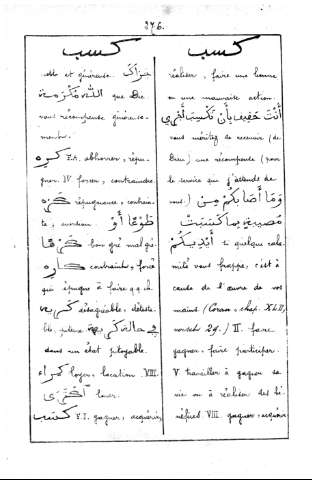 276.
كسب
noble et généreuse. جزاك
الله مكرمة que Dieu
vous récompense généreuse-
ment.
كره F.A. abhorrer, répu-
gner IV forcer, contraindre
كره répugnance, contrain-
te, aversion طوعا أو
كرها bon gré mal gré
كاره contraint, forcé
qui épugne à faire q.q. ch.
كريه désagréable, détesta-
ble, pénible في حالة كريهة
dans un état pitoyable.
كراء loyer, location VIII.
اكترى louer.
كسب F.I. gagner, acquérir,
كسب
réaliser, faire une bonne
ou une mauvaise action.
أنت حقيق بأن تكسب أجري
vous méritez de recevoir (de
Dieu) une récompense (pour
le service que j'attends de
vous) وما أصابكم من
مصيبة بما كسبت
أيديكم si quelque cala-
mité vous frappe, c'est à
cause de l'œuvre de vos
mains (Coran, chap. XLII,
verset 29.) II. faire
gagner, faire participer.
V travailler à gagner sa
vie ou à réaliser des bé-
néfices VIII gagner, acquérir